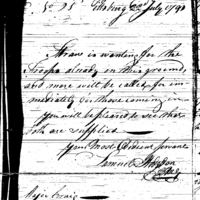 No 25 Pittsburg 22d July 1790
Straw is wanting for the
Troops already on this ground,
and more will be called for im-
mediately for those coming in.
You will be pleased to see that
both are supplied.
Your most Obedient Servant
Samuel
Major Craig